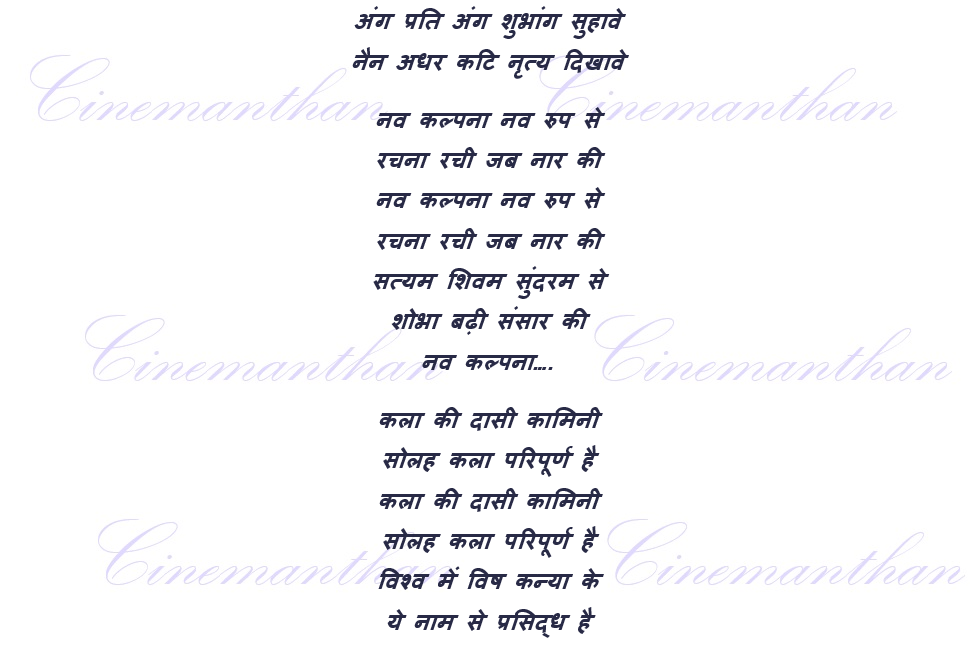 अंग प्रति अंग शुभांग सुहावे
नैन अधर कटि नृत्य दिखावे
Cinemanthan Cinemanthan
नव कल्पना नव रुप से
रचना रची जब नार की
नव कल्पना नव रुप से
रचना रची जब नार की
सत्यम शिवम सुंदरम से
शोभा बढ़ी संसार की
नव कल्पना....
Cinemanthan Cinemanthan
कला की दासी कामिनी
सोलह कला परिपूर्ण है
कला की दासी कामिनी
सोलह कला परिपूर्ण है
Cinemanthan Cinemanthan
विश्व में विष कन्या के
ये नाम से प्रसिद्ध है